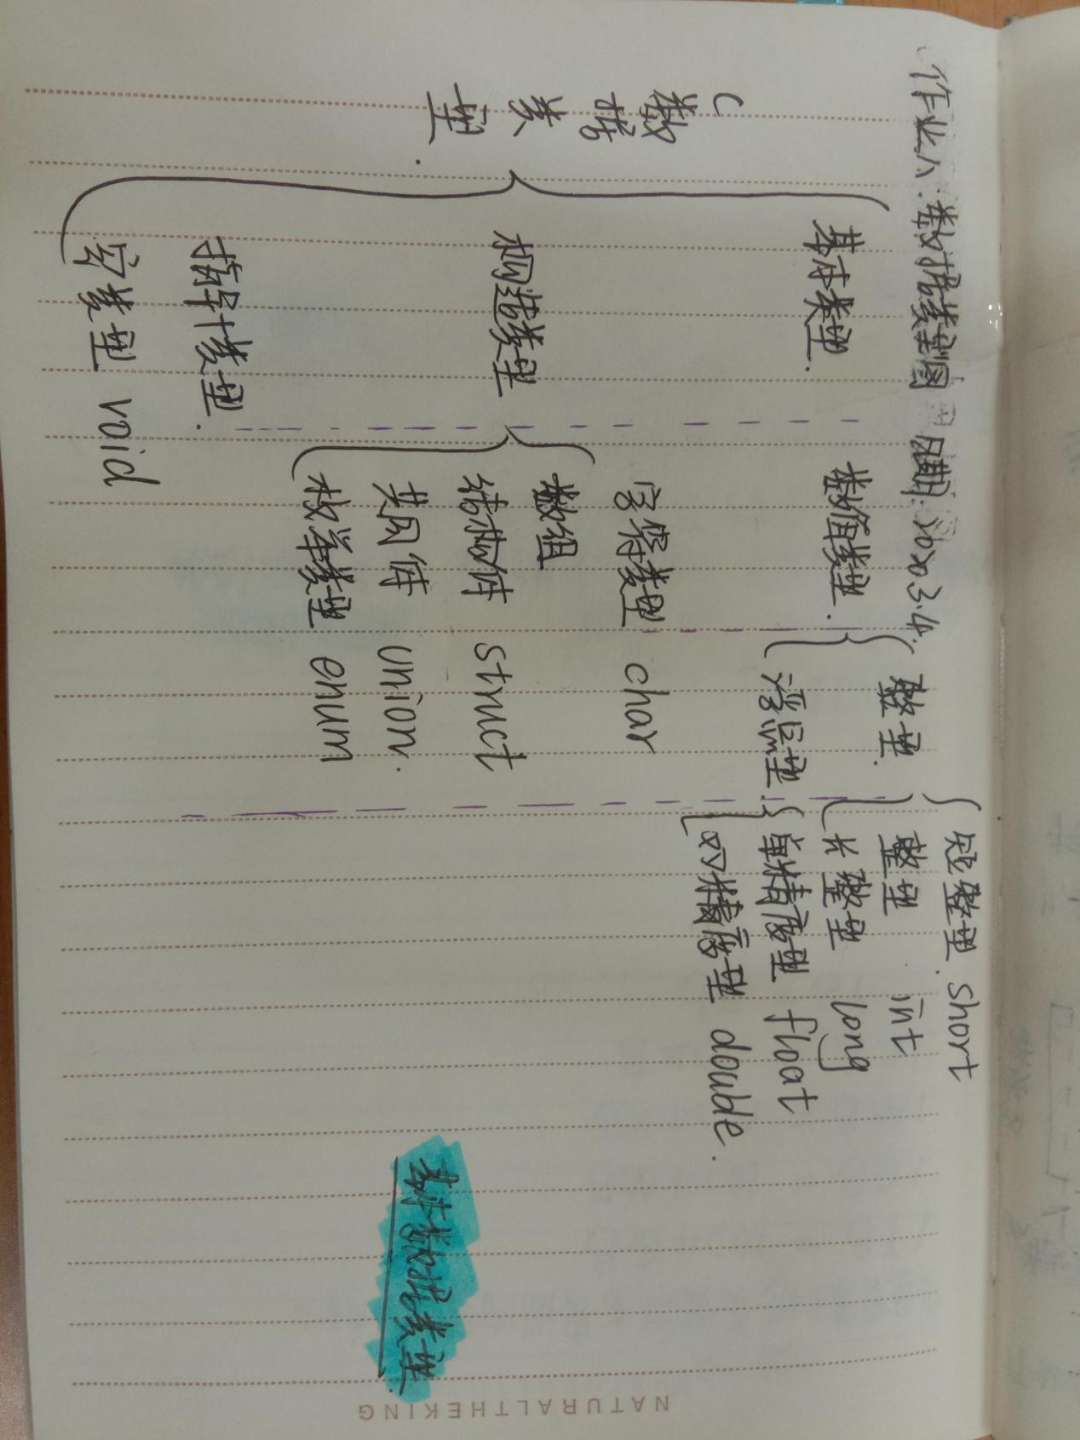 作业八:数据类型图 日期:2020.3.4.
C数据类型
基本类型.
数值类型.
整型.
短整型. short
整型 int
长整型 long
浮点型
单精度型 float
双精度型 double.
字符类型 char
构造类型
数组
结构体 struct
共同体 union.
枚举类型 enum
指针类型.
空类型 void
基本数据类型.
NATURALTHEKING